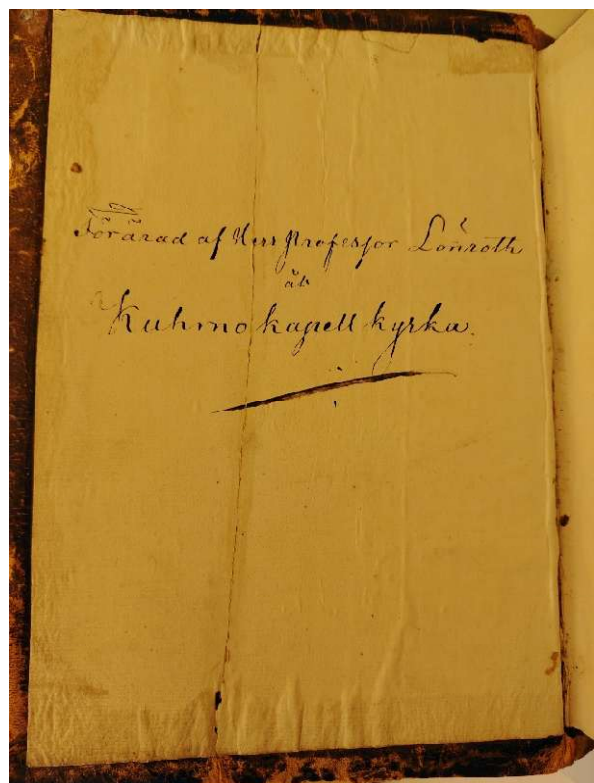 Förärad af Herr Professor Lönroth
åt
Kuhmo kapell kyrka.